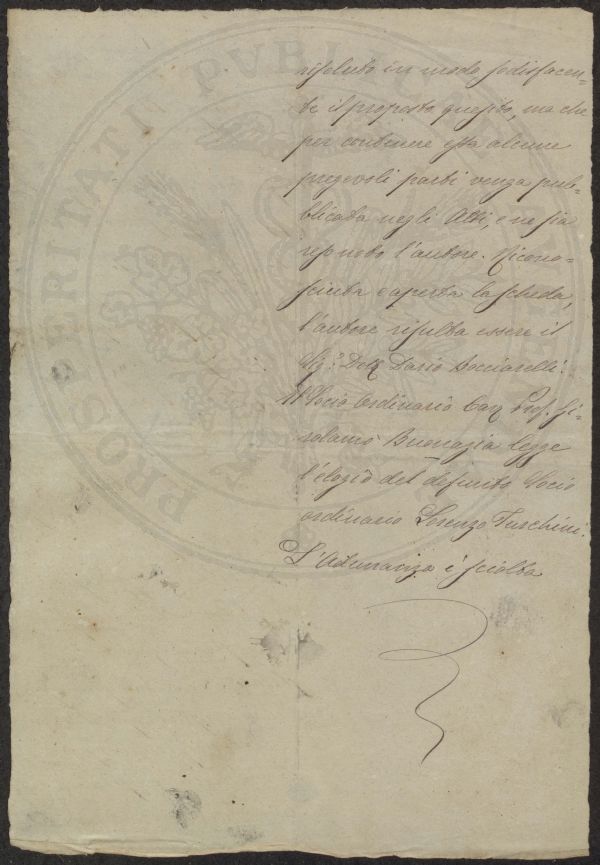 risoluto in modo sodisfacen=
te il proposto quesito, ma che
per contenere essa alcune
pregevoli parti venga pub=
blicata negli Atti, e ne sia
reso noto l'autore. Ricono=
sciuta e aperta la scheda,
l'autore risulta essere il
Sig.r Dott. Dario
Il Socio Ordinario Cav. Prof. Gi=
rolamo Buonazia legge
l'elogio del defunto Socio
ordinario Lorenzo Turchini.
L'Adunanza è sciolta
PROSPERITATI PVBLICAE